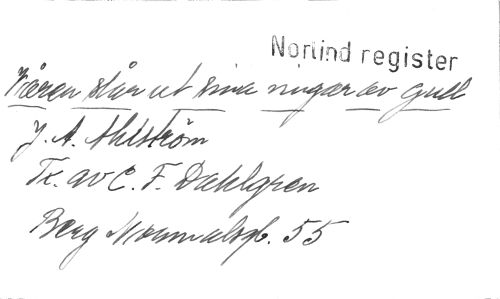 Norlind register
Våren slår ut sina vingar av gull
J. A. Ahlström
Tx. av C. F. Dahlgren
Berg Normalsgb. 55